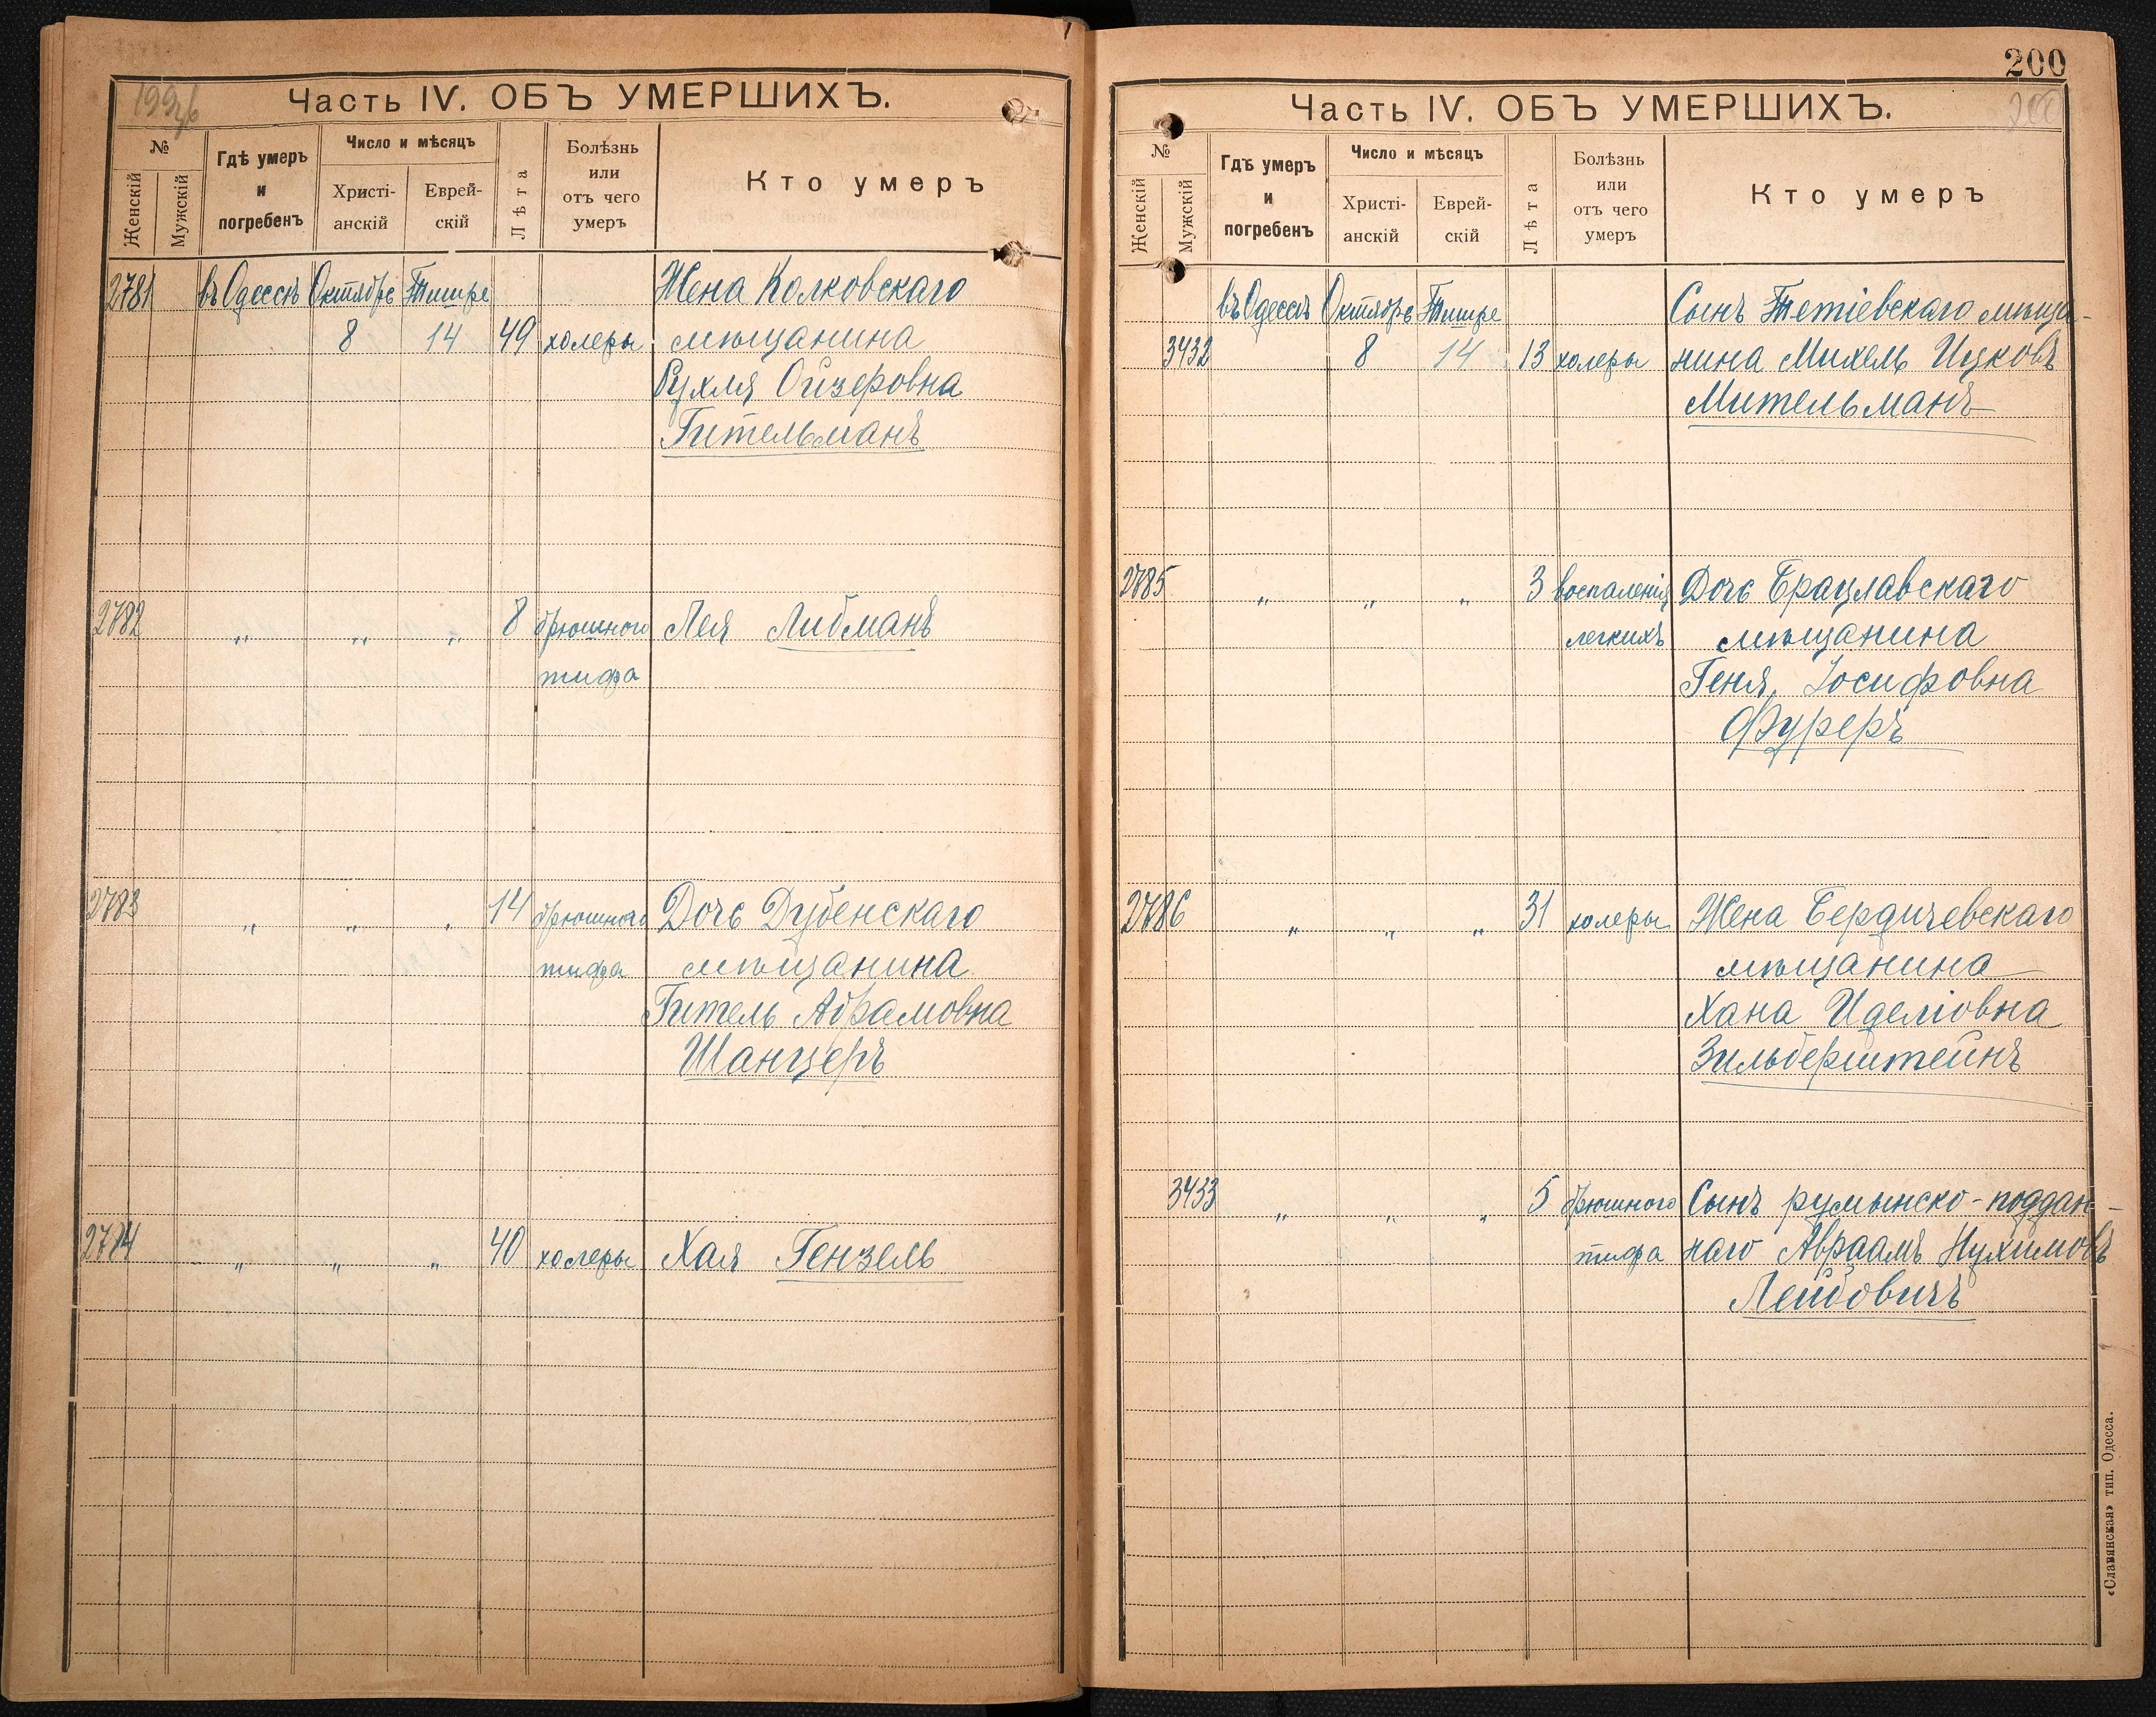 199об
Часть IV. ОБЪ УМЕРШИХЪ.
№
Женскій
Мужскій
Гдѣ умеръ и погребенъ
Число и мѣсяцъ
Христіанскій
Еврейскій
Лѣта
Болѣзнь или отъ чего умеръ
Кто умеръ
2781 въ Одессѣ Октябрь Тишре Жена Колковскаго
8 14 49 холеры мѣщанина
Рухля Ойзеровна
Гительманъ
2782 „ „ „ 8 брюшного Лея Либманъ
тифа
2783 „ „ „ 14 брюшного Дочь Дубенскаго
тифа мѣщанина
Гитель Абрамовна
Шанцеръ
2784 „ „ „ 40 холеры Хая Гензель
200
200
Часть IV. ОБЪ УМЕРШИХЪ.
№
Женскій
Мужскій
Гдѣ умеръ и погребенъ
Число и мѣсяцъ
Христіанскій
Еврейскій
Лѣта
Болѣзнь или отъ чего умеръ
Кто умеръ
въ Одессѣ Октябрь Тишре Сынъ Тетіевскаго мѣща-
3432 8 14 13 холеры нина Михель Ицковъ
Мительманъ
2785 „ „ „ 3 воспаленія Дочь Брацлавскаго
легкихъ мѣщанина
Геня Іосифовна
Фуреръ
2786 „ „ „ 31 холеры Жена Бердичевскаго
мѣщанина
Хана Иделіовна
Зильберштейнъ
3433 „ „ „ 5 брюшного Сынъ румынско-поддан-
тифа наго Авраамъ Нухимовъ
Лейбовичъ
«Славянская» тип. Одесса.